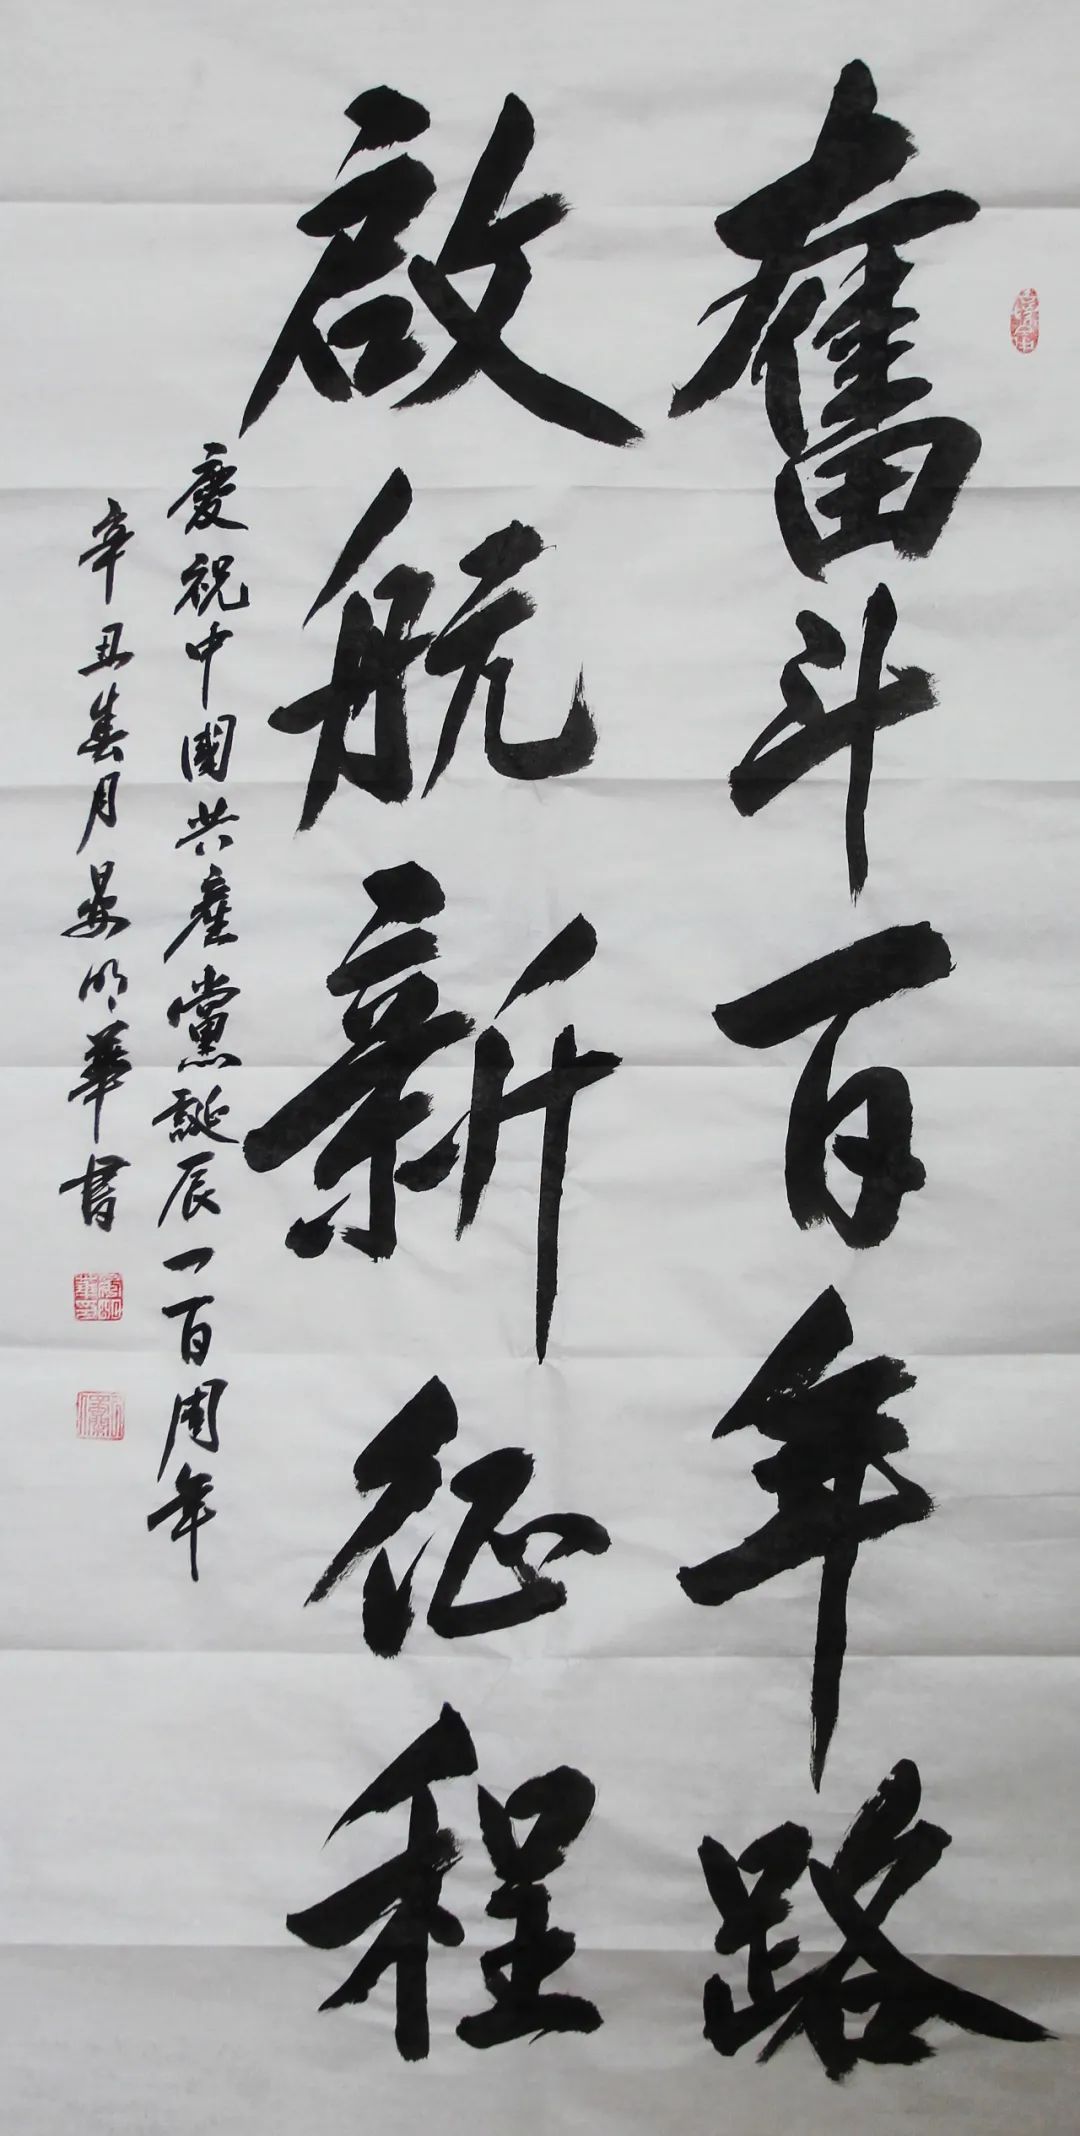 奮斗百年路
啟航新征程
慶祝中國共產黨誕辰一百周年
辛丑春月晏明華書